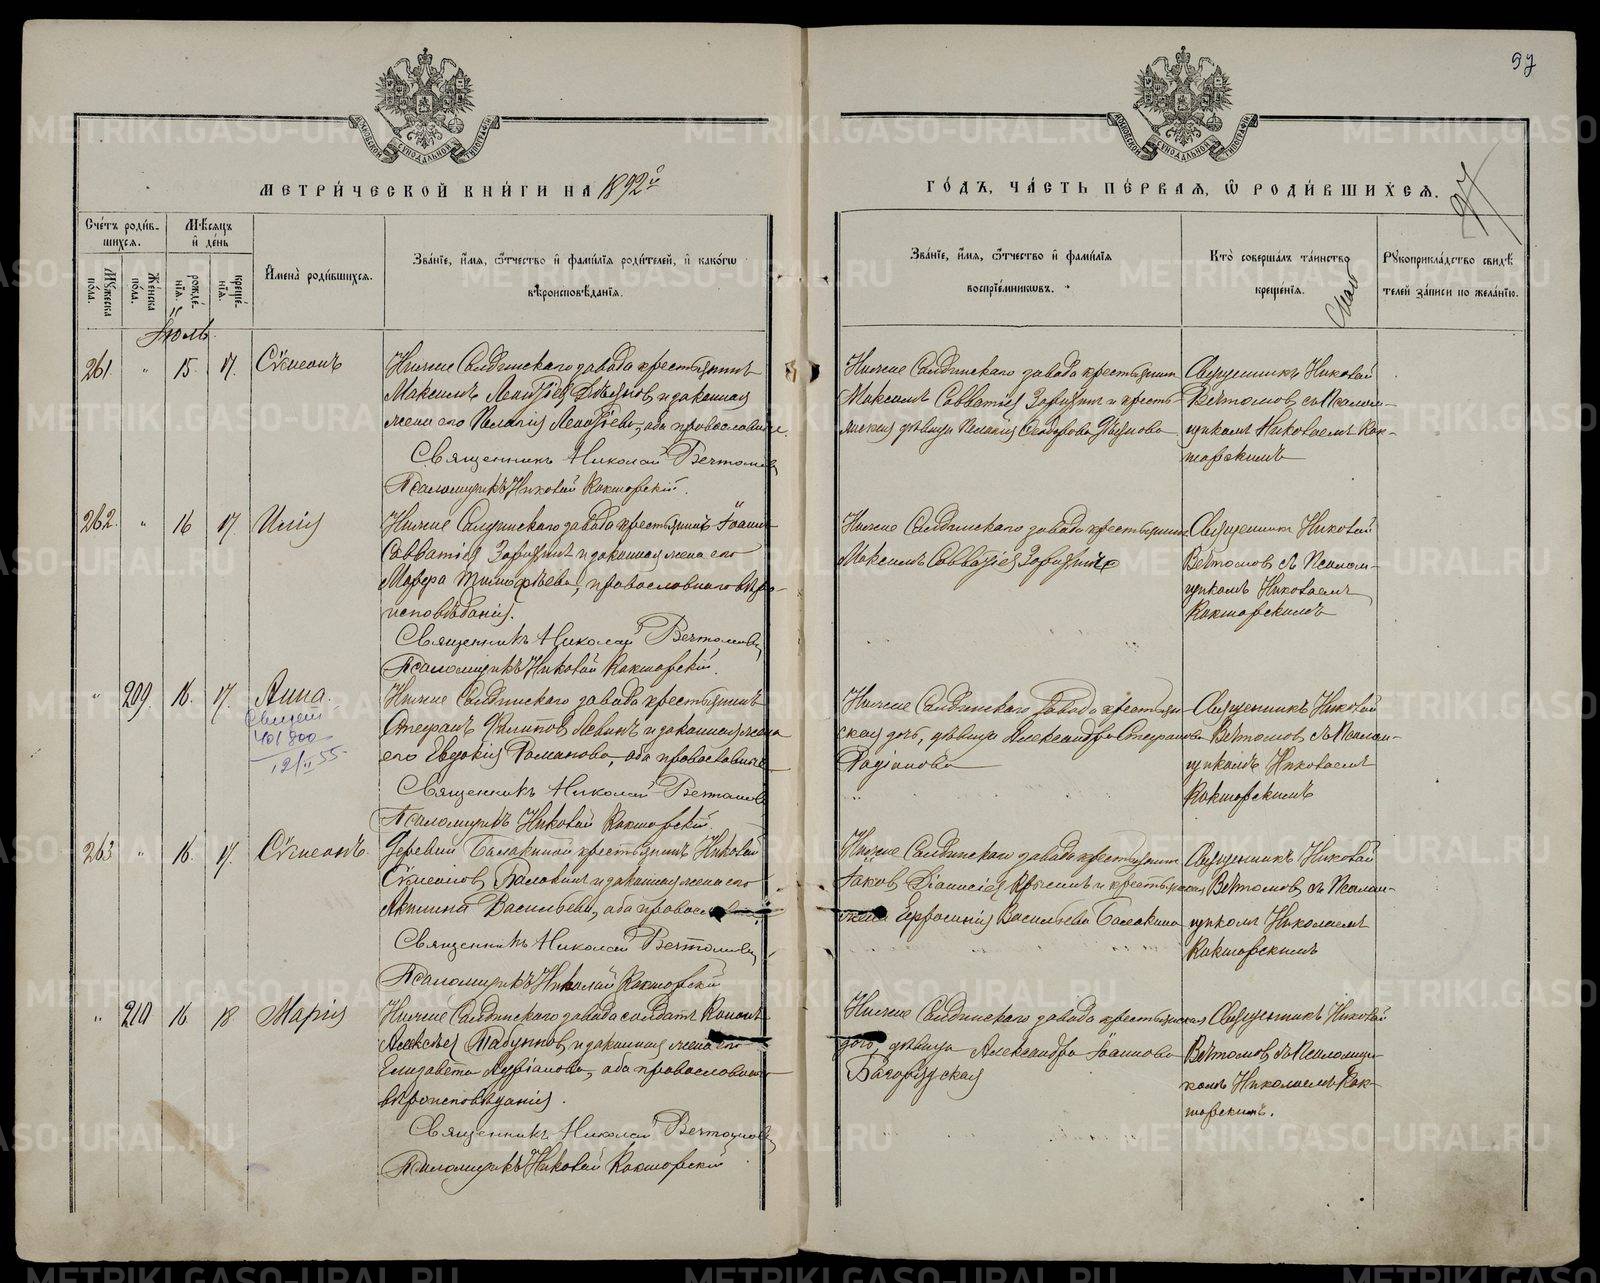 97
МЕТРИ́ЧЕСКОЙ КНИ́ГИ НА 1892й
ГО́ДЪ, ЧА́СТЬ ПЕ́РВАЯ, Ѿ РОДИ́ВШИХСЯ.
27
Сче́тъ роди́в-
шихся.
Мѣсяцъ
и҆ де́нь
Му́жеска
по́ла.
Же́нска
по́ла.
рожде́-
нїя.
креще́-
нїя.
И҆мена̀ роди́вшихся.
Зва́нїе, и҆́мя, ѻ҆́тчество и҆ фами́лїя роди́телей, и҆ како́гѡ
вѣроисповѣ́данїя.
Зва́нїе, и҆́мя, ѻ҆́тчество и҆ фами́лїя
воспрїе́мникѡвъ.
Кто̀ соверша́лъ та́инство
креще́нїя.
Рꙋкоприкла́дство свидѣ́
телей за́писи по жела́нїю.
Іюль.
261 " 15. 17. Сѵмеонъ
Нижне Салдинскаго завода крестьянинъ
Максимъ Леонтіев и законная
жена его Пелагія Леонтьева, оба православные.
Священникъ Николай Вечтомовъ
Псаломщикъ Николай Кокшарскій.
Нижне Салдинскаго завода крестьянин
Максимъ Савватіев и кресть
янская дѣвица
Священникъ Николай
Вечтомов съ Псалом-
щикомъ Николаемъ Кок-
шарскимъ
262. " 16 17 Илія
Нижне Салдинскаго завода крестьянинъ Іоанн
Савватіев и законная жена его
Марѳа Тимофѣева, православнаго вѣро-
исповѣданія.
Священникъ Николай Вечтомовъ
Псаломщикъ Николай Кокшарскій.
Нижне Салдинскаго завода крестьянинъ
Максимъ Савватіев
Священникъ Николай
Вечтомов съ Псалом-
щикомъ Николаемъ
Кокшарскимъ
" 209. 16. 17. Анна.
12/II 55
Нижне Салдинскаго завода крестьянинъ
Стефанъ Филипов и законная жена
его Евдокія Романова, оба православные
Священникъ Николай Вечтомов
Псаломщикъ Николай Кокшарскій.
Нижне Салдинскаго завода крестьян
ская дочь, дѣвица Александра Стефанова
Священникъ Николай
Вечтомов съ Псалом-
щикомъ Николаемъ
Кокшарскимъ
263 " 16. 17. Сѵмеонъ.
Деревни Балакиной крестьянинъ Николай
Сѵмеонов и законная жена его
Васильева, оба православ
Священникъ Николай Вечтомовъ
Псаломщикъ Николай Кокшарскій
Нижне Салдинскаго завода крестьянинъ
Іаков Діонисіев и крестьянская
Евфросинія Васильева Балакина
Священникъ Николай
Вечтомов съ Псалом-
щикомъ Николаемъ
Кокшарскимъ
" 210 16. 18 Марія
Нижне Салдинскаго завода солдатъ
Алексѣев Табунов и законная жена его
Елизавета, оба православнаго
вѣроисповѣданія.
Священникъ Николай Вечтомовъ
Псаломщикъ Николай Кокшарскій
Нижне Салдинскаго завода крестьянская
дочь, дѣвица Александра Іоаннова
Священникъ Николай
Вечтомов съ Псаломщи-
комъ Николаемъ Кок-
шарскимъ.
METRIKI.GASO-URAL.RU